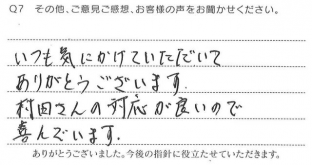 Q7 その他、ご意見ご感想、お客様の声をお聞かせください。
いつも気にかけていただいて
ありがとうございます.
村田さんの対応が良いので
喜んでいます.
ありがとうございました。今後の指針に役立たせていただきます。